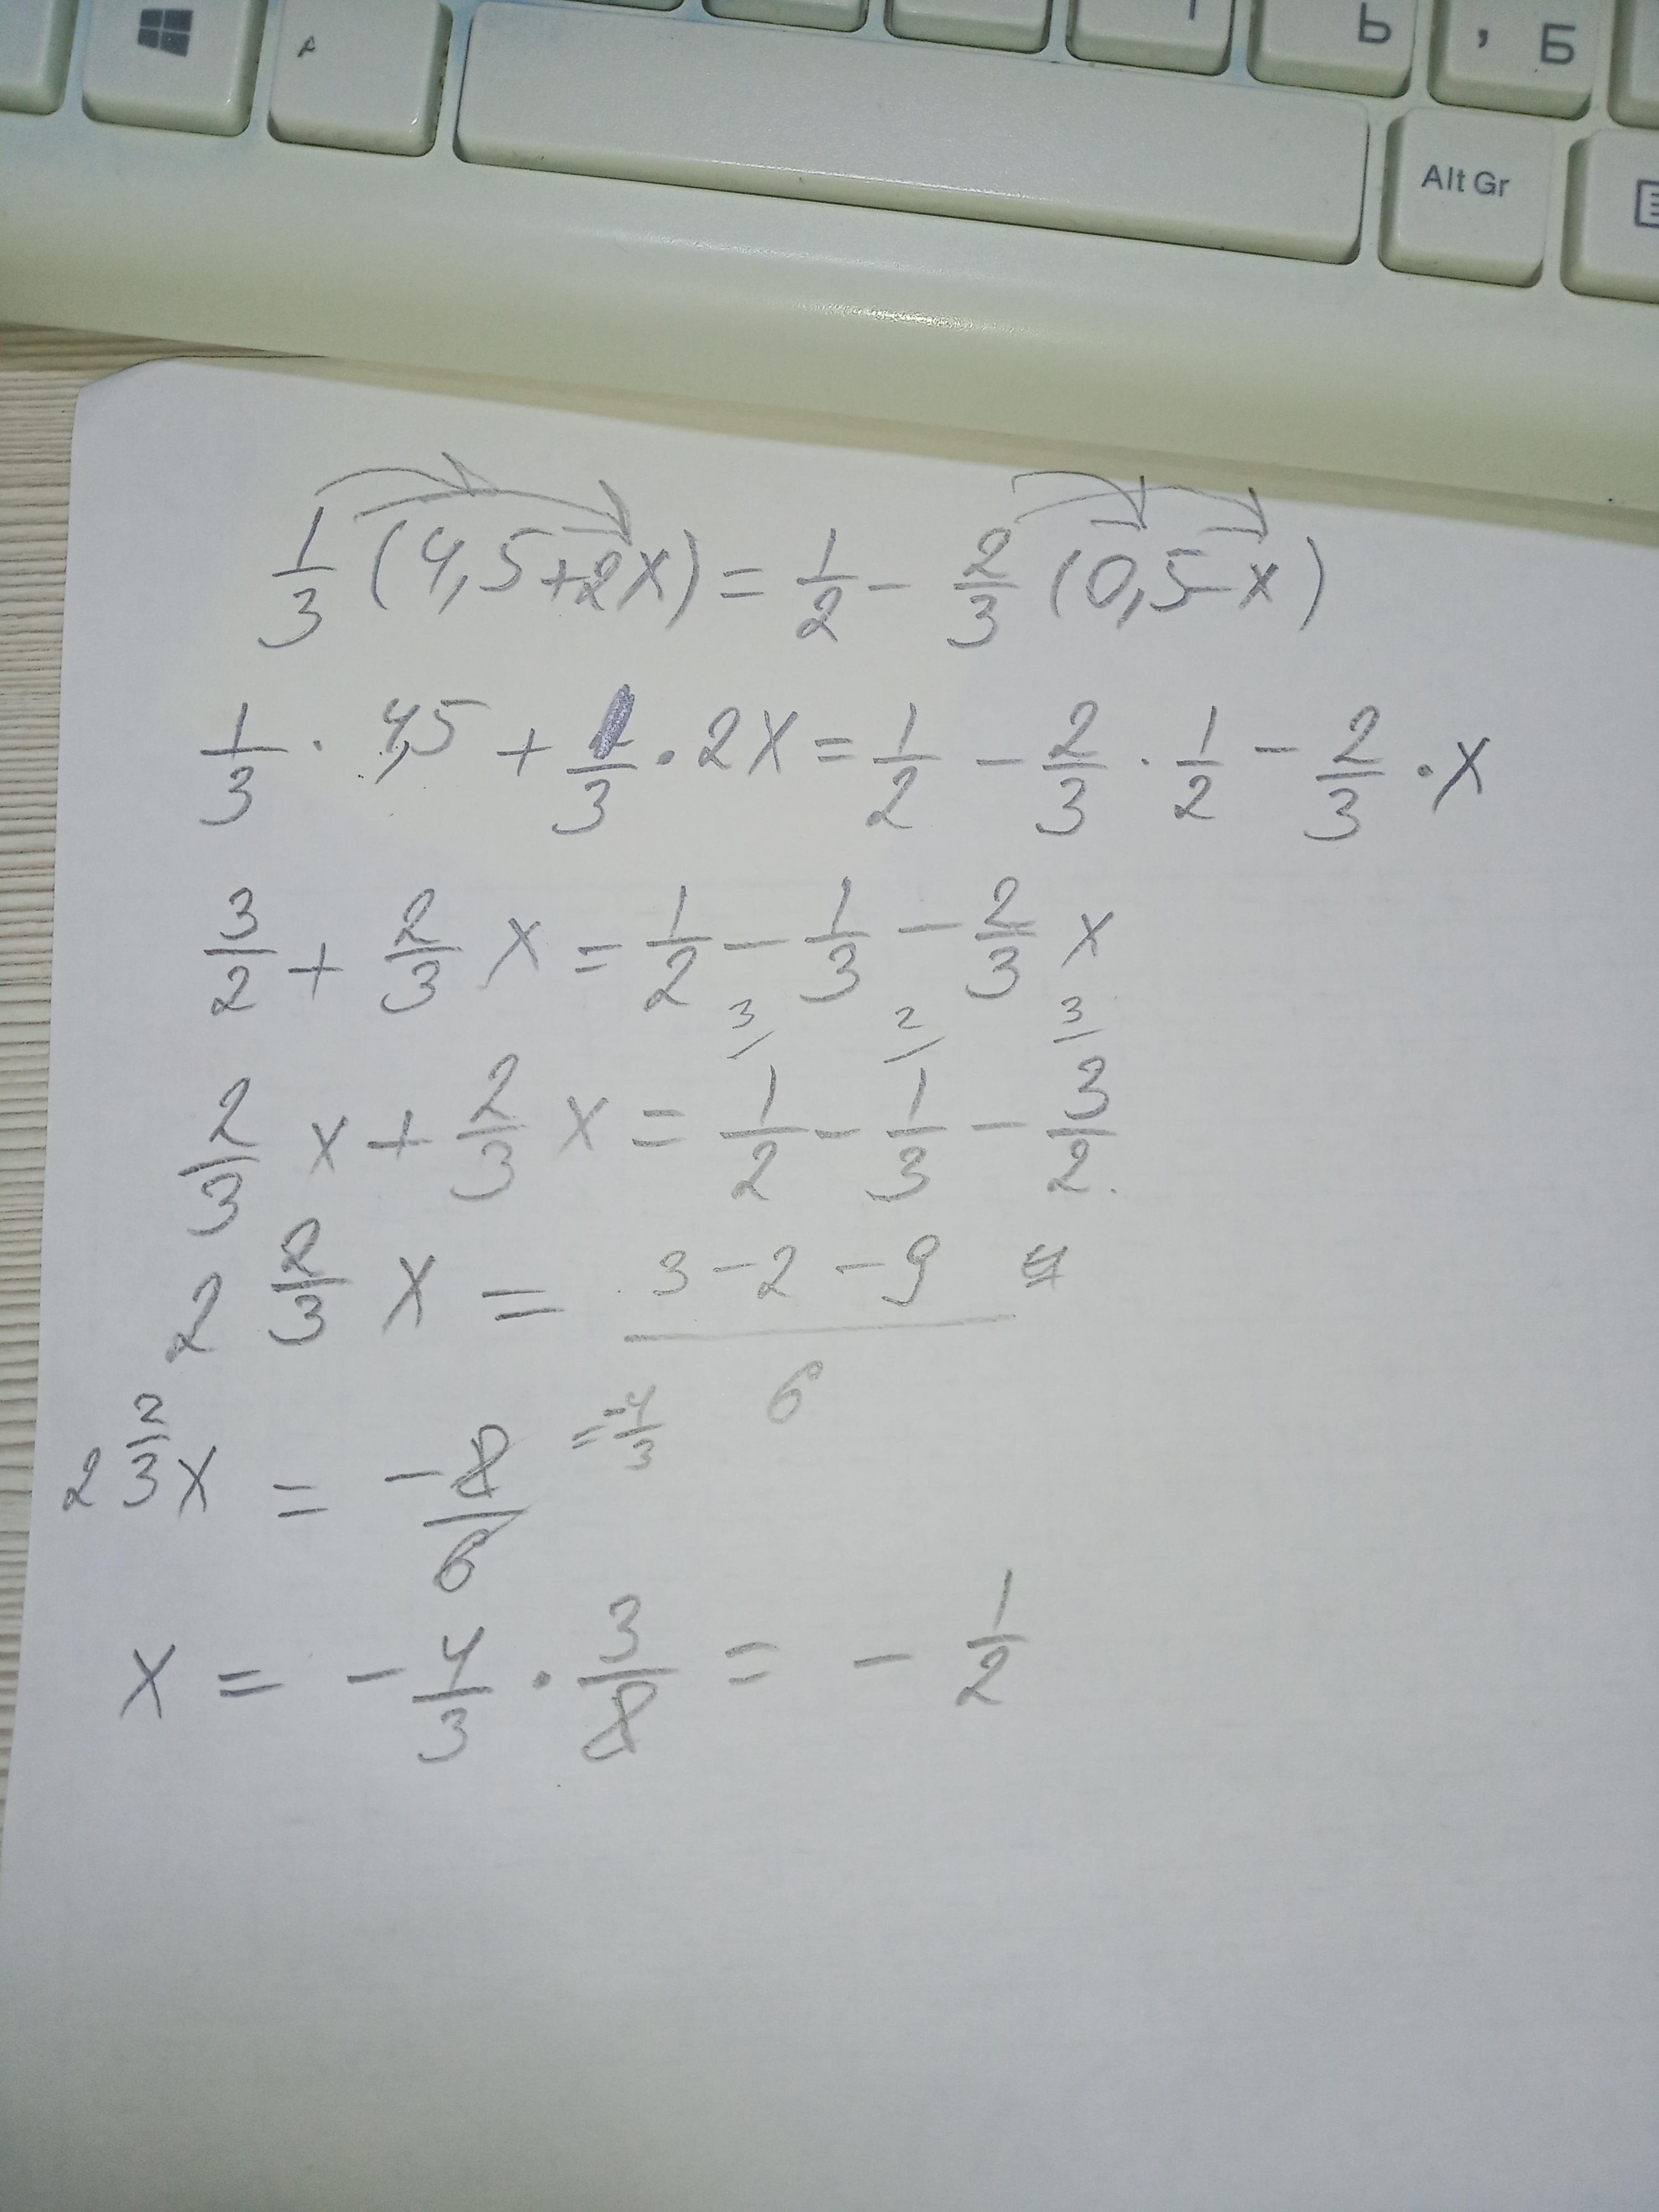 ь , Б
Alt Gr
1/3 (4,5+2x) = 1/2 - 2/3 (0,5-x)
1/3 · 4,5 + 1/3 · 2x = 1/2 - 2/3 · 1/2 - 2/3 · x
3/2 + 2/3 x = 1/2 - 1/3 - 2/3 x
3/ 2/ 3/
2/3 x + 2/3 x = 1/2 - 1/3 - 3/2
2 2/3 x = (3-2-9)/6
2 2/3 x = -8/6 = -4/3
x = -4/3 · 3/8 = -1/2